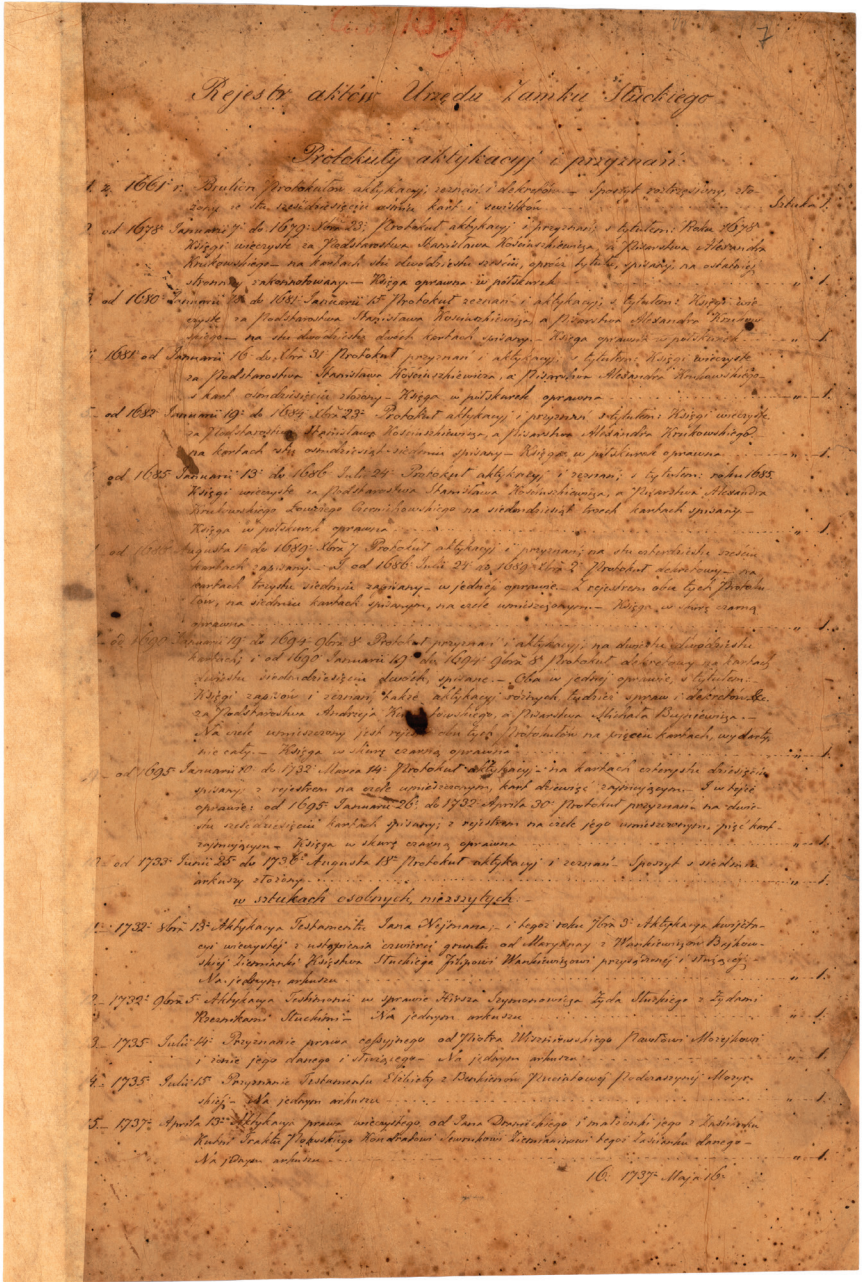 7
Rejestr aktów Urzędu Zamku Słuckiego
Protokuły aktykacyj i przyznań.
1. z 1661 r. Brulion Protokułów aktykacyj, zeznań i dekretów — Sposzyt rozstrzęsiony, zło-
żony ze stu sześćdziesięciu ośmiu kart i świstków Sztuka 1.
od 1678 Januarii 7 do 1679 Xbra 23 Protokuł aktykacyj i przyznań, z tytułem: Roku 1678
Księgi wieczyste za Podstarostwa Stanisława Kościuszkiewicza, a Pisarstwa Alexandra
Krukowskiego — na kartach stu dwudziestu sześciu, oprócz tytułu, spisany, na ostatniej
stronnicy zakonnotowany — Księga oprawna w półskurek " 1.
od 1680 Januarii do 1681 Januarii 15 Protokuł zeznań i aktykacyj, z tytułem: Księgi wie-
czyste za Podstarostwa Stanisława Kościuszkiewicza a Pisarstwa Alexandra Krukow-
skiego — na stu dwudziestu dwóch kartach spisany — Księga oprawna w półskurek " 1.
1681 od Januarii 16 do Xbra 31 Protokuł przyznań i aktykacyj, z tytułem: Księgi wieczyste
za Podstarostwa Stanisława Kościuszkiewicza, a Pisarstwa Alexandra Krukowskiego —
z kart ośmdziesięciu złożony — Księga w półskurek oprawna " 1.
od 1682 Januarii 19 do 1684 Xbra 23 Protokuł aktykacyj i przyznań z tytułem: Księgi wieczyste
za Podstarostwa Stanisława Kościuszkiewicza, a Pisarstwa Alexandra Krukowskiego —
na kartach stu ośmdziesiąt siedmiu spisany — Księga w półskurek oprawna " 1.
od 1685 Januarii 13 do 1686 Julii 24 Protokuł aktykacyj i zeznań, z tytułem: roku 1685
Księgi wieczyste za Podstarostwa Stanisława Kościuszkiewicza, a Pisarstwa Alexandra
Krukowskiego Łowczego Czernihowskiego na siedmdziesiąt trzech kartach spisany —
Księga w półskurek oprawna " 1.
od Augusta 1 do 1689 Xbra 7 Protokuł aktykacyj i przyznań, na stu czterdziestu sześciu
kartach zapisany — a od 1686 Julii 24 do 1689 Xbra 2 Protokuł dekretowy — na
kartach trzystu siedmiu zapisany — w jednej oprawie — z rejestrem obu tych Protoku-
łów, na siedmiu kartach spisanym, na czele umieszczonym — Księga w skurę czarną
oprawna " 1.
od 1690 Januarii 19 do 1694 9bra 8 Protokuł przyznań i aktykacyj, na dwóchstu dwudziestu
kartach; i od 1690 Januarii 19 do 1694 9bra 8 Protokuł dekretowy na kartach
dwustu siedmdziesięciu dwóch, spisane — Oba w jednej oprawie, z tytułem:
Księgi zapisów i zeznań, także aktykacyj różnych, tudzież spraw i dekretów &c.
za Podstarostwa Andrzeja, a Pisarstwa Michała Bujniewicza. —
Na czele umieszczony jest rejestr obu tych Protokułów na pięciu kartach, wydarty,
nie cały — Księga w skurę czarną oprawna " 1.
od 1695 Januarii 10 do 1732 Marca 14 Protokuł aktykacyj — na kartach czterystu dziesięciu
spisany, z rejestrem na czele umieszczonym, kart dziewięć zajmującym — I w tejże
oprawie: od 1695 Januarii 26 do 1732 Aprila 30 Protokuł przyznań — na dwó-
stu sześćdziesięciu kartach spisany, z rejestrem na czele jego umieszczonym, pięć kart
zajmującym — Księga w skurę czarną oprawna " 1.
od 1733 Junii 25 do 1736 Augusta 18 Protokuł aktykacyj i zeznań — Sposzyt z siedmiu
arkuszy złożony " 1.
w sztukach osobnych, niezszytych.
1. 1732 8bra 13 Aktykacya Testamentu Jana Nejmana; — i tegoż roku 7bra 3 Aktykacya kwijeta-
cyi wieczystej z ustąpienia czwierci gruntu od Maryanny z Wankiewiczów Bujkow-
skiej Ziemianki Księstwa Słuckiego Filipowi Wankiewiczowi przysądzonej i służącej —
Na jednym arkuszu " 1.
2. 1732 9bra 5 Aktykacya Testimonii w sprawie Hirsza Szymonowicza Żyda Słuckiego z Żydami
Rzeznikami Słuckimi — Na jednym arkuszu " 1.
3. 1735 Julii 14 Przyznanie prawa cessyjnego od Piotra Wiszniewskiego Pawłowi Morejkowi
i żonie jego danego i służącego — Na jednym arkuszu " 1.
4. 1735 Julii 15 Przyznanie Testamentu Elżbiety z Podczaszynej Mozyr-
skiej — Na jednym arkuszu " 1.
5. 1737 Aprila 13 Aktykacya prawa wieczystego od Jana i małżonki jego z Zaścianku
Traktu Kondratowi Sewrukowi Ziemianinowi tegoż Zaścianku danego —
Na jednym arkuszu " 1.
16. 1737 Maja 16